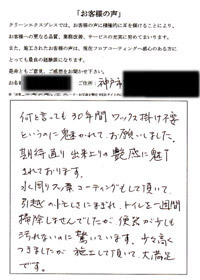 「お客様の声」
クリーンエクスプレスでは、お客様の声に積極的に耳を傾けることにより、
お客様への更なる品質、業務改善、サービスの充実に努めてまいります。
また、施工されたお客様の声は、現在フロアコーティングへ感心のある方に
とっても最良の経験談になります。
是非ともご意見、ご感想をお聞かせ下さい。
お名前
ご住所 神戸市
何と言っても30年間ワックス掛け不要
というのに魅かれて、お願いしました。
期待通り 出来上りの艶感に魅了
されております。
水回りフッ素コーティングもして頂いて、
引越のドタバタにまぎれ、トイレを一週間
掃除しませんでしたが 便器が少しも
汚れないのに驚いています。少々高く
つきましたが 施工して頂いて、大満足
です。